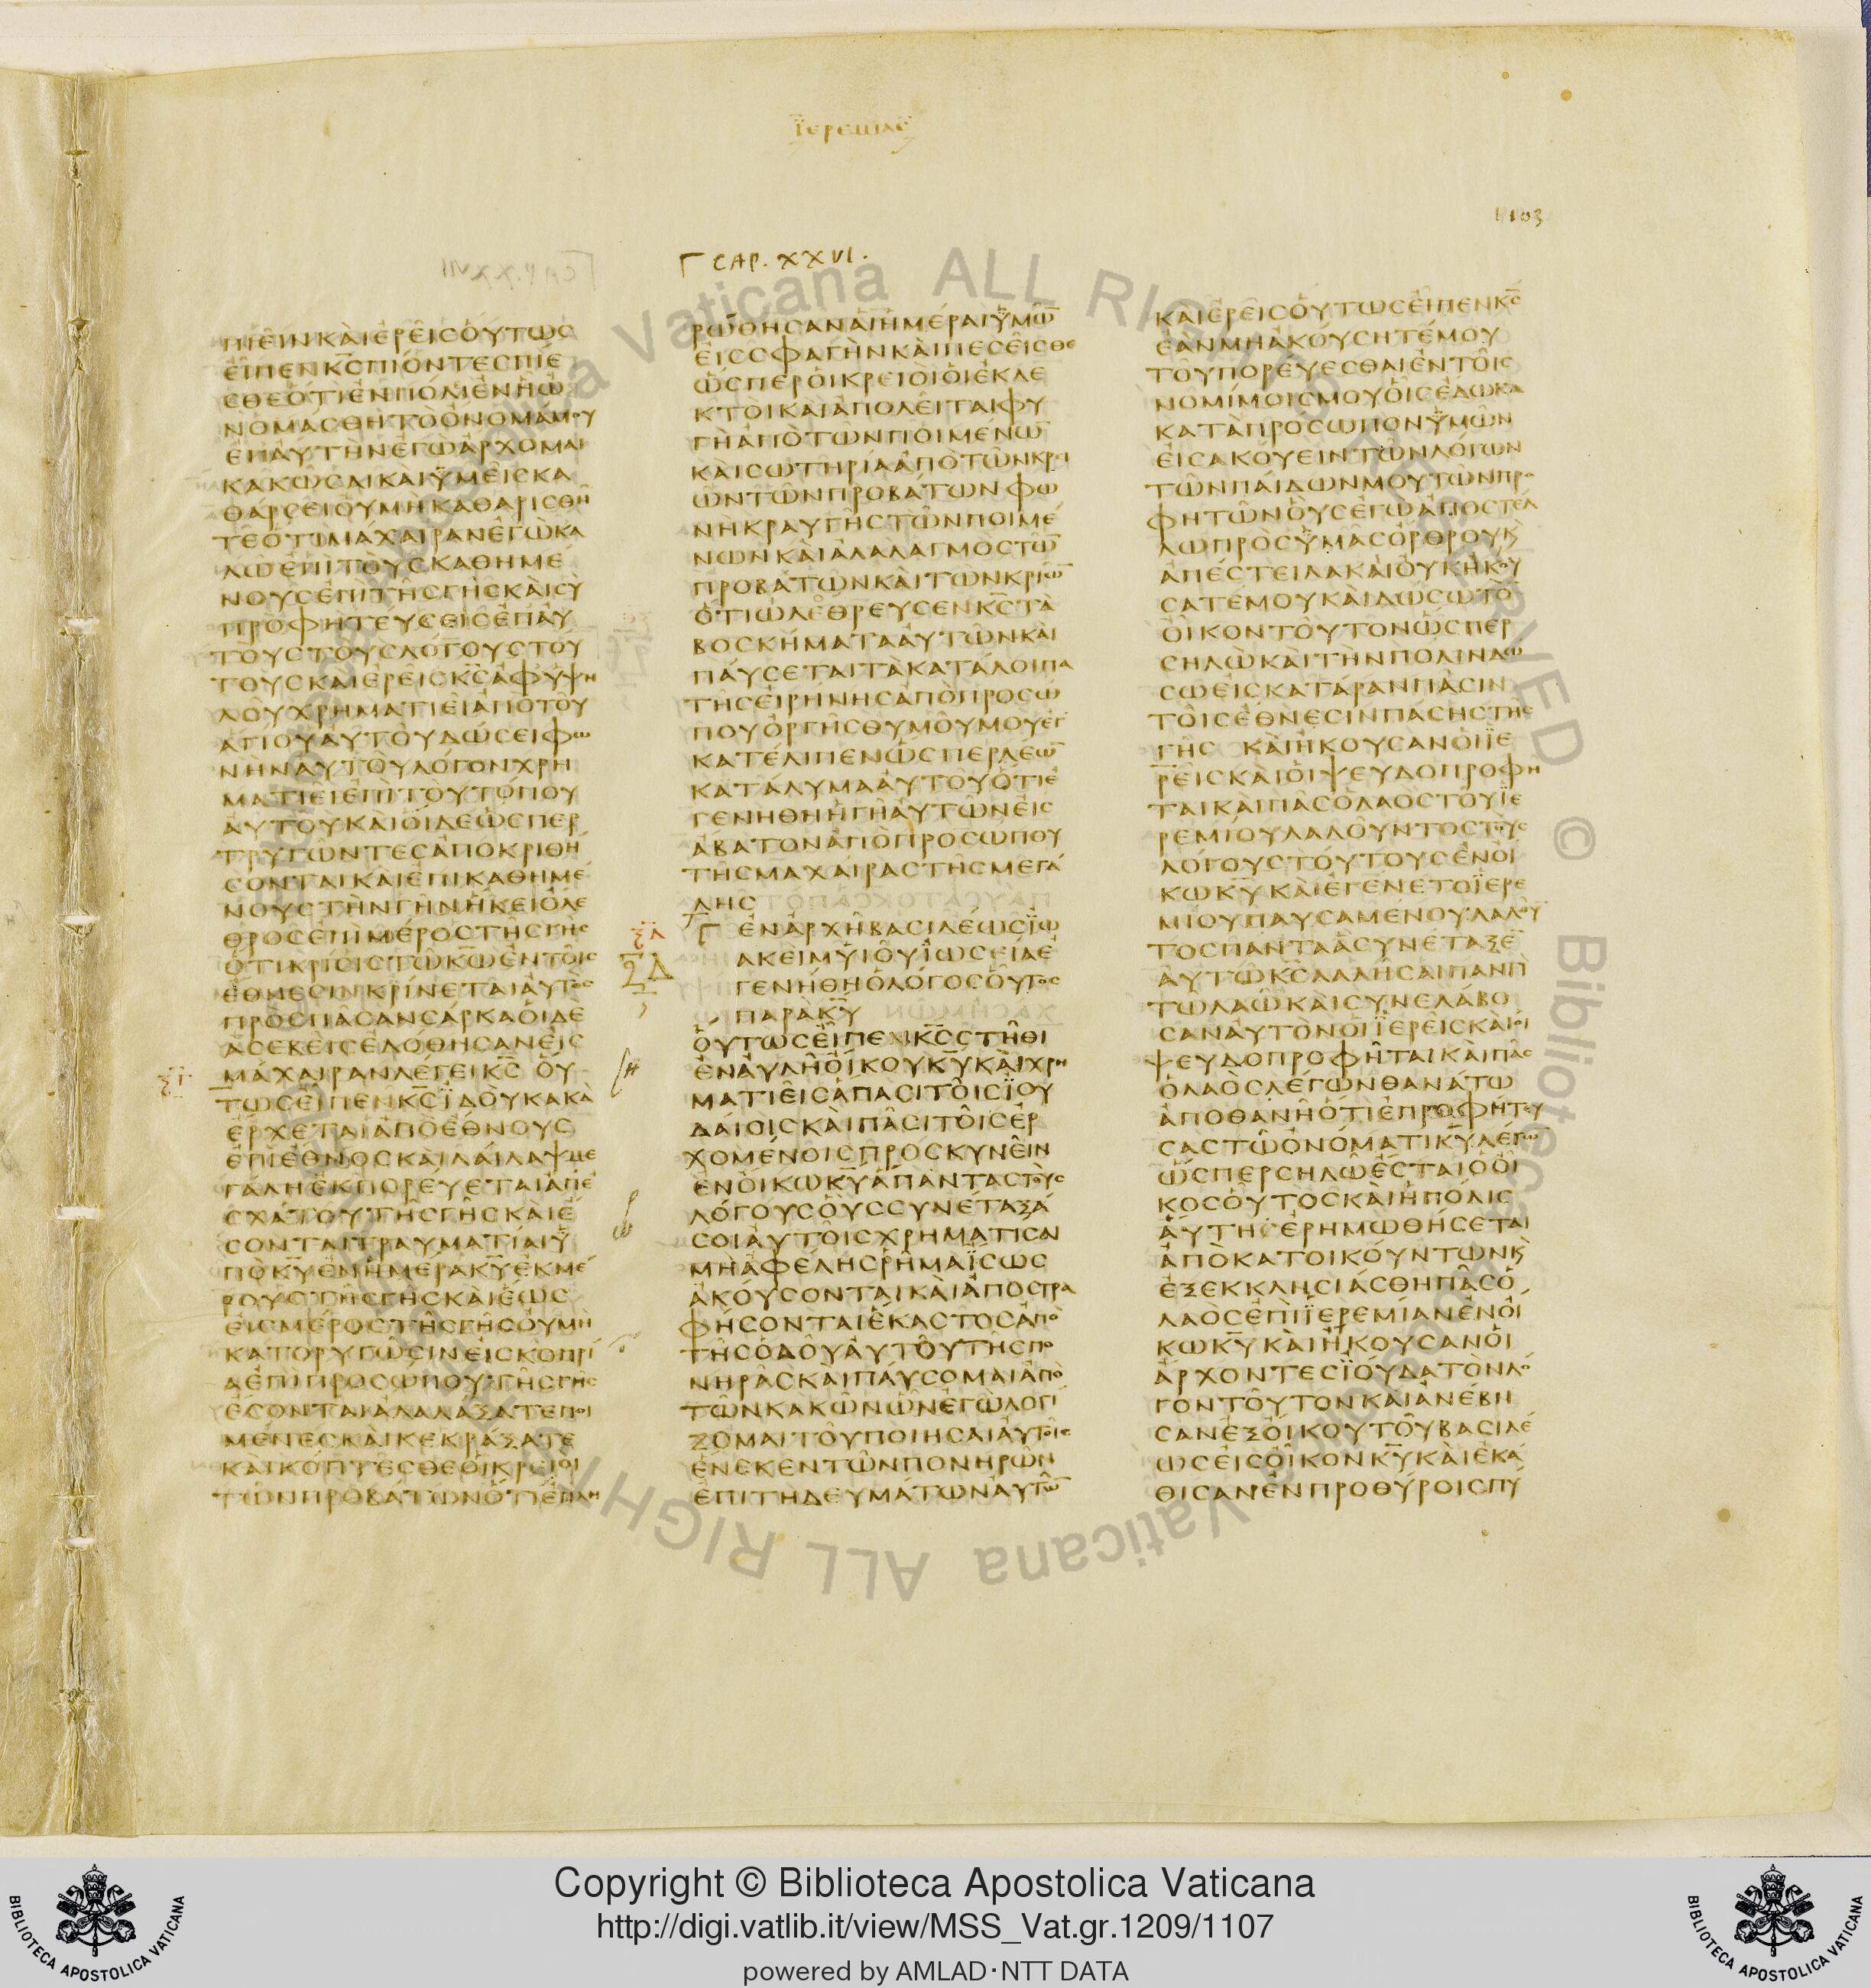 ϊερεμιας
1103
Γ CAP. XXVI.
ΠΙΕΙΝΚΑΙΕΡΕΙΣΟΥΤΩΣ
ΕΙΠΕΝΚΣΠΙΟΝΤΕΣΠΙΕ
ΣΘΕΟΤΙΕΝΠΟΛΙΕΝΗΩ
ΝΟΜΑΣΘΗΤΟΟΝΟΜΑΜΟΥ
ΕΠΑΥΤΗΝΕΓΩΑΡΧΟΜΑΙ
ΚΑΚΩΣΑΙΚΑΙΫΜΕΙΣΚΑ
ΘΑΡΣΕΙΟΥΜΗΚΑΘΑΡΙΣΘΗ
ΤΕΟΤΙΜΑΧΑΙΡΑΝΕΓΩΚΑ
ΛΩΕΠΙΤΟΥΣΚΑΘΗΜΕ
ΝΟΥΣΕΠΙΤΗΣΓΗΣΚΑΙΣΥ
ΠΡΟΦΗΤΕΥΣΕΙΣΕΠΑΥ
ΤΟΥΣΤΟΥΣΛΟΓΟΥΣΤΟΥ
ΤΟΥΣΚΑΙΕΡΕΙΣΚΣΑΦΥΨΗ
ΛΟΥΧΡΗΜΑΤΙΕΙΑΠΟΤΟΥ
ΑΓΙΟΥΑΥΤΟΥΔΩΣΕΙΦΩ
ΝΗΝΑΥΤΟΥΛΟΓΟΝΧΡΗ
ΜΑΤΙΕΙΕΠΙΤΟΥΤΟΠΟΥ
ΑΥΤΟΥΚΑΙΟΙΔΕΩΣΠΕΡ
ΤΡΥΓΩΝΤΕΣΑΠΟΚΡΙΘΗ
ΣΟΝΤΑΙΚΑΙΕΠΙΚΑΘΗΜΕ
ΝΟΥΣΤΗΝΓΗΝΗΚΕΙΟΛΕ
ΘΡΟΣΕΠΙΜΕΡΟΣΤΗΣΓΗΣ
ΟΤΙΚΡΙΣΙΣΤΩΚΩΕΝΤΟΙΣ
ΕΘΝΕΣΙΝΚΡΙΝΕΤΑΙΑΥΤΟΣ
ΠΡΟΣΠΑΣΑΝΣΑΡΚΑΟΙΔΕ
ΑΣΕΒΕΙΣΕΔΟΘΗΣΑΝΕΙΣ
ΜΑΧΑΙΡΑΝΛΕΓΕΙΚΣ ΟΥ
ΤΩΣΕΙΠΕΝΚΣΪΔΟΥΚΑΚΑ
ΕΡΧΕΤΑΙΑΠΟΕΘΝΟΥΣ
ΕΠΙΕΘΝΟΣΚΑΙΛΑΙΛΑΨΜΕ
ΓΑΛΗΕΚΠΟΡΕΥΕΤΑΙΑΠΕ
ΣΧΑΤΟΥΤΗΣΓΗΣΚΑΙΕ
ΣΟΝΤΑΙΤΡΑΥΜΑΤΙΑΙΫ
ΠΟΚΥΕΝΗΜΕΡΑΚΥΕΚΜΕ
ΡΟΥΣΤΗΣΓΗΣΚΑΙΕΩΣ
ΕΙΣΜΕΡΟΣΤΗΣΓΗΣΟΥΜΗ
ΚΑΤΟΡΥΓΩΣΙΝΕΙΣΚΟΠΡΙ
ΑΕΠΙΠΡΟΣΩΠΟΥΤΗΣΓΗΣ
ΕΣΟΝΤΑΙΑΛΑΛΑΞΑΤΕΠΟΙ
ΜΕΝΕΣΚΑΙΚΕΚΡΑΞΑΤΕ
ΚΑΙΚΟΠΤΕΣΘΕΟΙΚΡΕΙΟΙ
ΤΩΝΠΡΟΒΑΤΩΝΟΤΙΕΠΛΗ
ΡΩΘΗΣΑΝΑΙΗΜΕΡΑΙΫΜΩ
ΕΙΣΣΦΑΓΗΝΚΑΙΠΕΣΕΙΣΘΕ
ΩΣΠΕΡΟΙΚΡΕΙΟΙΟΙΕΚΛΕ
ΚΤΟΙΚΑΙΑΠΟΛΕΙΤΑΙΦΥ
ΓΗΑΠΟΤΩΝΠΟΙΜΕΝΩ
ΚΑΙΣΩΤΗΡΙΑΑΠΟΤΩΝΚΡΙ
ΩΝΤΩΝΠΡΟΒΑΤΩΝΦΩ
ΝΗΚΡΑΥΓΗΣΤΩΝΠΟΙΜΕ
ΝΩΝΚΑΙΑΛΑΛΑΓΜΟΣΤΩ
ΠΡΟΒΑΤΩΝΚΑΙΤΩΝΚΡΙΩ
ΟΤΙΩΛΕΘΡΕΥΣΕΝΚΣΤΑ
ΒΟΣΚΗΜΑΤΑΑΥΤΩΝΚΑΙ
ΠΑΥΣΕΤΑΙΤΑΚΑΤΑΛΟΙΠΑ
ΤΗΣΕΙΡΗΝΗΣΑΠΟΠΡΟΣΩ
ΠΟΥΟΡΓΗΣΘΥΜΟΥΜΟΥΕΓ
ΚΑΤΕΛΙΠΕΝΩΣΠΕΡΛΕΩ
ΚΑΤΑΛΥΜΑΑΥΤΟΥΟΤΙΕ
ΓΕΝΗΘΗΗΓΗΑΥΤΩΝΕΙΣ
ΑΒΑΤΟΝΑΠΟΠΡΟΣΩΠΟΥ
ΤΗΣΜΑΧΑΙΡΑΣΤΗΣΜΕΓΑ
ΛΗΣ
Γ ΕΝΑΡΧΗΒΑΣΙΛΕΩΣΪΩ
ΑΚΕΙΜΥΙΟΥΪΩΣΕΙΑΕ
ΓΕΝΗΘΗΟΛΟΓΟΣΟΥΤΟΣ
ΠΑΡΑΚΥ
ΟΥΤΩΣΕΙΠΕΝΚΣΣΤΗΘΙ
ΕΝΑΥΛΗΟΙΚΟΥΚΥΚΑΙΧΡΗ
ΜΑΤΙΕΙΣΑΠΑΣΙΤΟΙΣΪΟΥ
ΔΑΙΟΙΣΚΑΙΠΑΣΙΤΟΙΣΕΡ
ΧΟΜΕΝΟΙΣΠΡΟΣΚΥΝΕΙΝ
ΕΝΟΙΚΩΚΥΑΠΑΝΤΑΣΤΟΥΣ
ΛΟΓΟΥΣΟΥΣΣΥΝΕΤΑΞΑ
ΣΟΙΑΥΤΟΙΣΧΡΗΜΑΤΙΣΑΙ
ΜΗΑΦΕΛΗΣΡΗΜΑΪΣΩΣ
ΑΚΟΥΣΟΝΤΑΙΚΑΙΑΠΟΣΤΡΑ
ΦΗΣΟΝΤΑΙΕΚΑΣΤΟΣΑΠΟ
ΤΗΣΟΔΟΥΑΥΤΟΥΤΗΣΠΟ
ΝΗΡΑΣΚΑΙΠΑΥΣΟΜΑΙΑΠΟ
ΤΩΝΚΑΚΩΝΩΝΕΓΩΛΟΓΙ
ΖΟΜΑΙΤΟΥΠΟΙΗΣΑΙΑΥΤΟΙΣ
ΕΝΕΚΕΝΤΩΝΠΟΝΗΡΩΝ
ΕΠΙΤΗΔΕΥΜΑΤΩΝΑΥΤΩ
ΚΑΙΕΡΕΙΣΟΥΤΩΣΕΙΠΕΝΚΣ
ΕΑΝΜΗΑΚΟΥΣΗΤΕΜΟΥ
ΤΟΥΠΟΡΕΥΕΣΘΑΙΕΝΤΟΙΣ
ΝΟΜΙΜΟΙΣΜΟΥΟΙΣΕΔΩΚΑ
ΚΑΤΑΠΡΟΣΩΠΟΝΫΜΩΝ
ΕΙΣΑΚΟΥΕΙΝΤΩΝΛΟΓΩΝ
ΤΩΝΠΑΙΔΩΝΜΟΥΤΩΝΠΡΟ
ΦΗΤΩΝΟΥΣΕΓΩΑΠΟΣΤΕΛ
ΛΩΠΡΟΣΫΜΑΣΟΡΘΡΟΥΚ
ΑΠΕΣΤΕΙΛΑΚΑΙΟΥΚΗΚΟΥ
ΣΑΤΕΜΟΥΚΑΙΔΩΣΩΤΟ
ΟΙΚΟΝΤΟΥΤΟΝΩΣΠΕΡ
ΣΗΛΩΚΑΙΤΗΝΠΟΛΙΝΔΩ
ΣΩΕΙΣΚΑΤΑΡΑΝΠΑΣΙΝ
ΤΟΙΣΕΘΝΕΣΙΝΠΑΣΗΣΤΗΣ
ΓΗΣ ΚΑΙΗΚΟΥΣΑΝΟΙΪΕ
ΡΕΙΣΚΑΙΟΙΨΕΥΔΟΠΡΟΦΗ
ΤΑΙΚΑΙΠΑΣΟΛΑΟΣΤΟΥΪΕ
ΡΕΜΙΟΥΛΑΛΟΥΝΤΟΣΤΟΥΣ
ΛΟΓΟΥΣΤΟΥΤΟΥΣΕΝΟΙ
ΚΩΚΥΚΑΙΕΓΕΝΕΤΟΪΕΡΕ
ΜΙΟΥΠΑΥΣΑΜΕΝΟΥΛΑΛΟΥ
ΤΟΣΠΑΝΤΑΑΣΥΝΕΤΑΞΕ
ΑΥΤΩΚΣΛΑΛΗΣΑΙΠΑΝΤΙ
ΤΩΛΑΩΚΑΙΣΥΝΕΛΑΒΟ
ΣΑΝΑΥΤΟΝΟΙΪΕΡΕΙΣΚΑΙΟΙ
ΨΕΥΔΟΠΡΟΦΗΤΑΙΚΑΙΠΑΣ
ΟΛΑΟΣΛΕΓΩΝΘΑΝΑΤΩ
ΑΠΟΘΑΝΗΟΤΙΕΠΡΟΦΗΤΕΥ
ΣΑΣΤΩΟΝΟΜΑΤΙΚΥΛΕΓΩ
ΩΣΠΕΡΣΗΛΩΕΣΤΑΙΟΟΙ
ΚΟΣΟΥΤΟΣΚΑΙΗΠΟΛΙΣ
ΑΥΤΗΕΡΗΜΩΘΗΣΕΤΑΙ
ΑΠΟΚΑΤΟΙΚΟΥΝΤΩΝΚ
ΕΞΕΚΚΛΗΣΙΑΣΘΗΠΑΣΟ
ΛΑΟΣΕΠΙΪΕΡΕΜΙΑΝΕΝΟΙ
ΚΩΚΥΚΑΙΗΚΟΥΣΑΝΟΙ
ΑΡΧΟΝΤΕΣΪΟΥΔΑΤΟΝΛΟ
ΓΟΝΤΟΥΤΟΝΚΑΙΑΝΕΒΗ
ΣΑΝΕΞΟΙΚΟΥΤΟΥΒΑΣΙΛΕ
ΩΣΕΙΣΟΙΚΟΝΚΥΚΑΙΕΚΑ
ΘΙΣΑΝΕΝΠΡΟΘΥΡΟΙΣΠΥ
Copyright © Biblioteca Apostolica Vaticana
http://digi.vatlib.it/view/MSS_Vat.gr.1209/1107
powered by AMLAD·NTT DATA
BIBLIOTECA APOSTOLICA VATICANA
BIBLIOTECA APOSTOLICA VATICANA